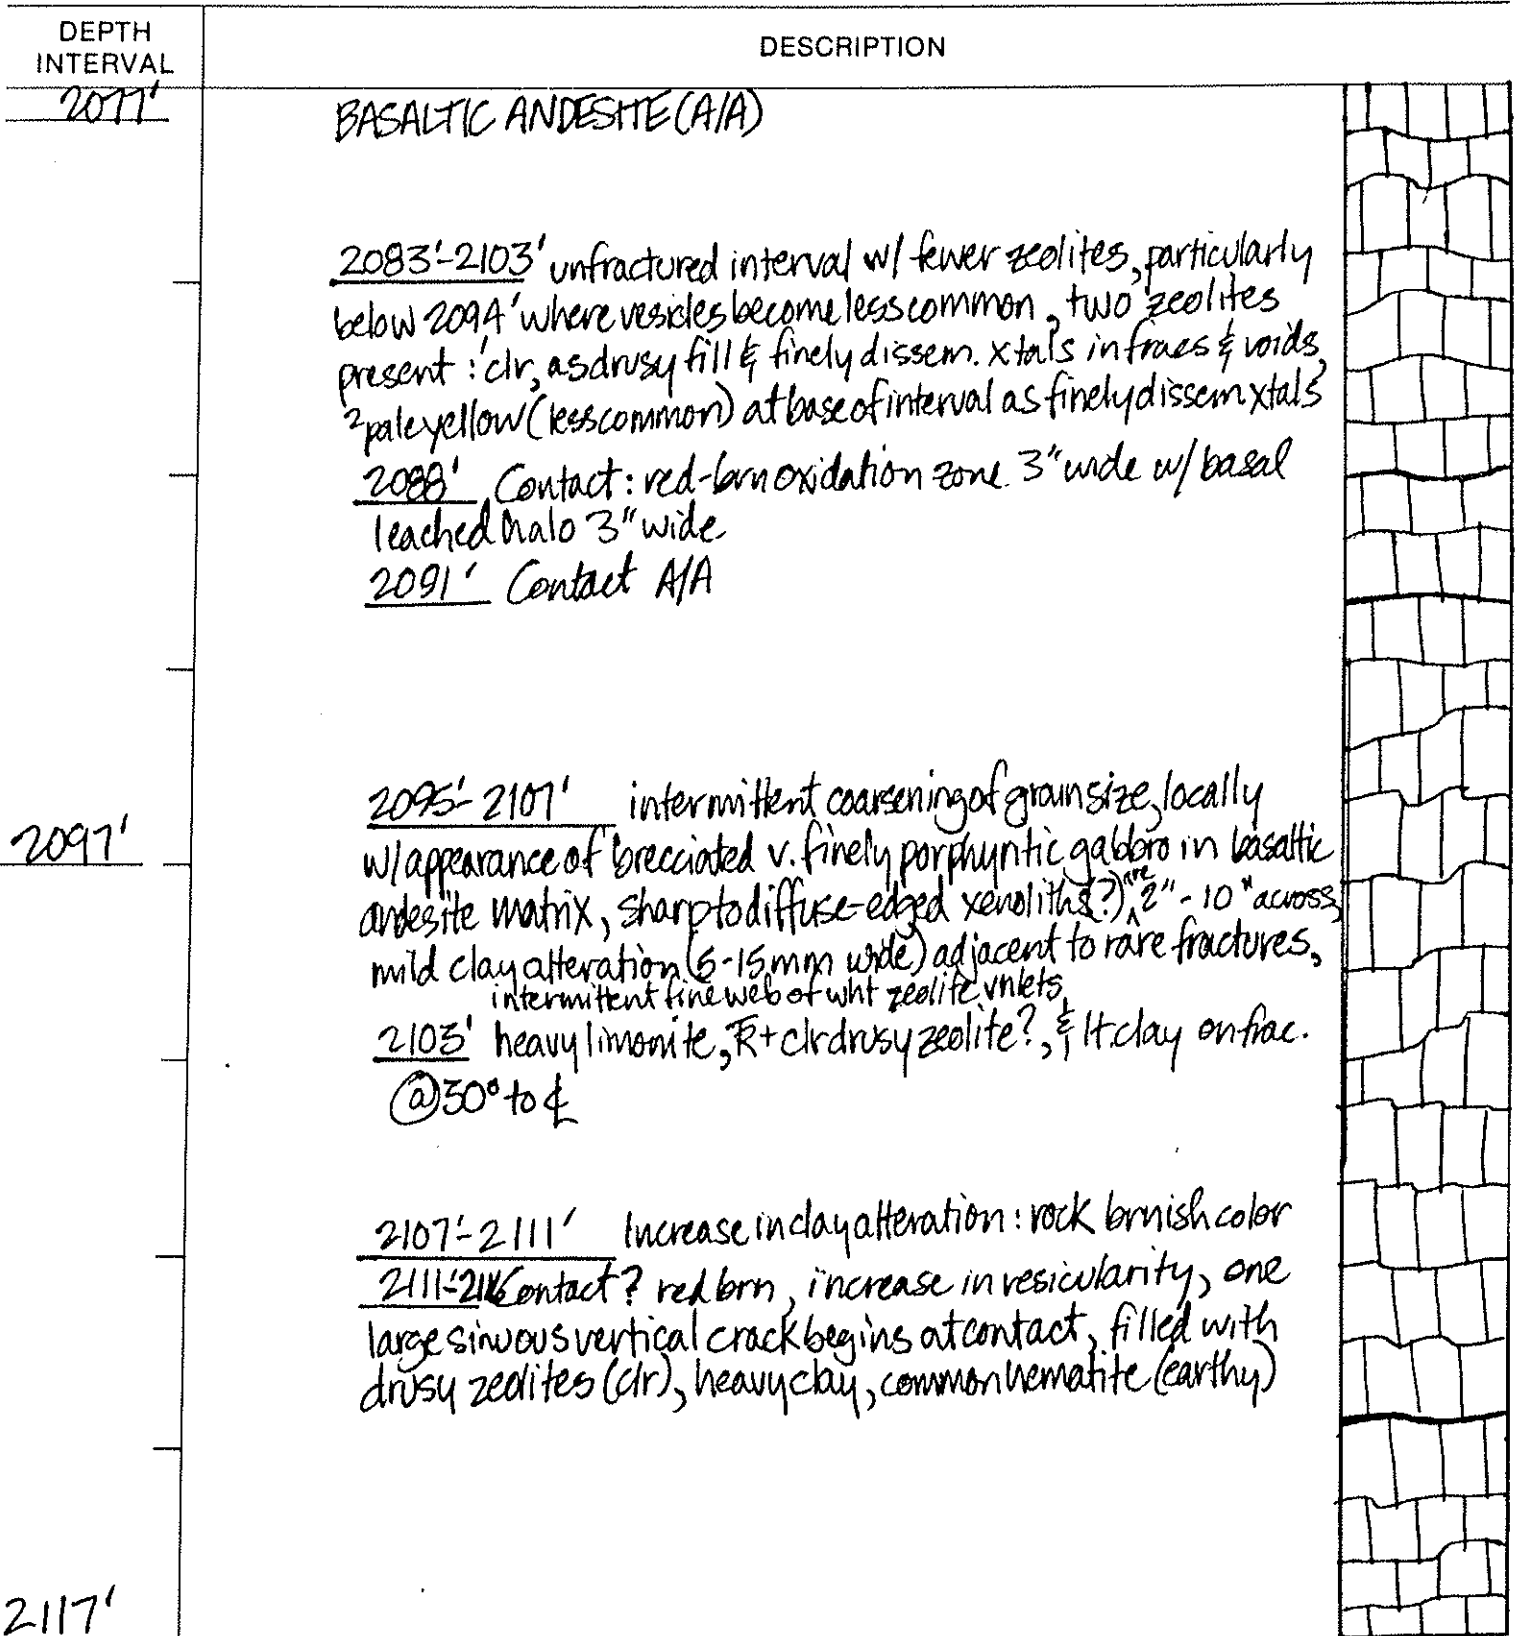 DEPTH INTERVAL
DESCRIPTION
2077'
BASALTIC ANDESITE (A/A)
2083'-2103' unfractured interval w/ fewer zeolites, particularly
below 2094' where vesicles become less common, two zeolites
present: ¹clr, as drusy fill & finely dissem. xtals in fracs & voids,
²pale yellow (less common) at base of interval as finely dissem xtals
2088' Contact: red-brn oxidation zone 3" wide w/ basal
leached halo 3" wide
2091' Contact A/A
2095'-2107' intermittent coarsening of grain size, locally
2097'
w/ appearance of brecciated v. finely porphyritic gabbro in basaltic
andesite matrix, sharp to diffuse-edged xenoliths(?) are 2"-10" across,
mild clay alteration (5-15mm wide) adjacent to rare fractures,
intermittent fine web of wht zeolite vnlets
2103' heavy limonite, + clr drusy zeolite?, & lt. clay on frac.
@ 30° to ℄
2107'-2111' Increase in clay alteration: rock brnish color
2111'- Contact? red brn, increase in vesicularity, one
large sinuous vertical crack begins at contact, filled with
drusy zeolites (clr), heavy clay, common hematite (earthy)
2117'